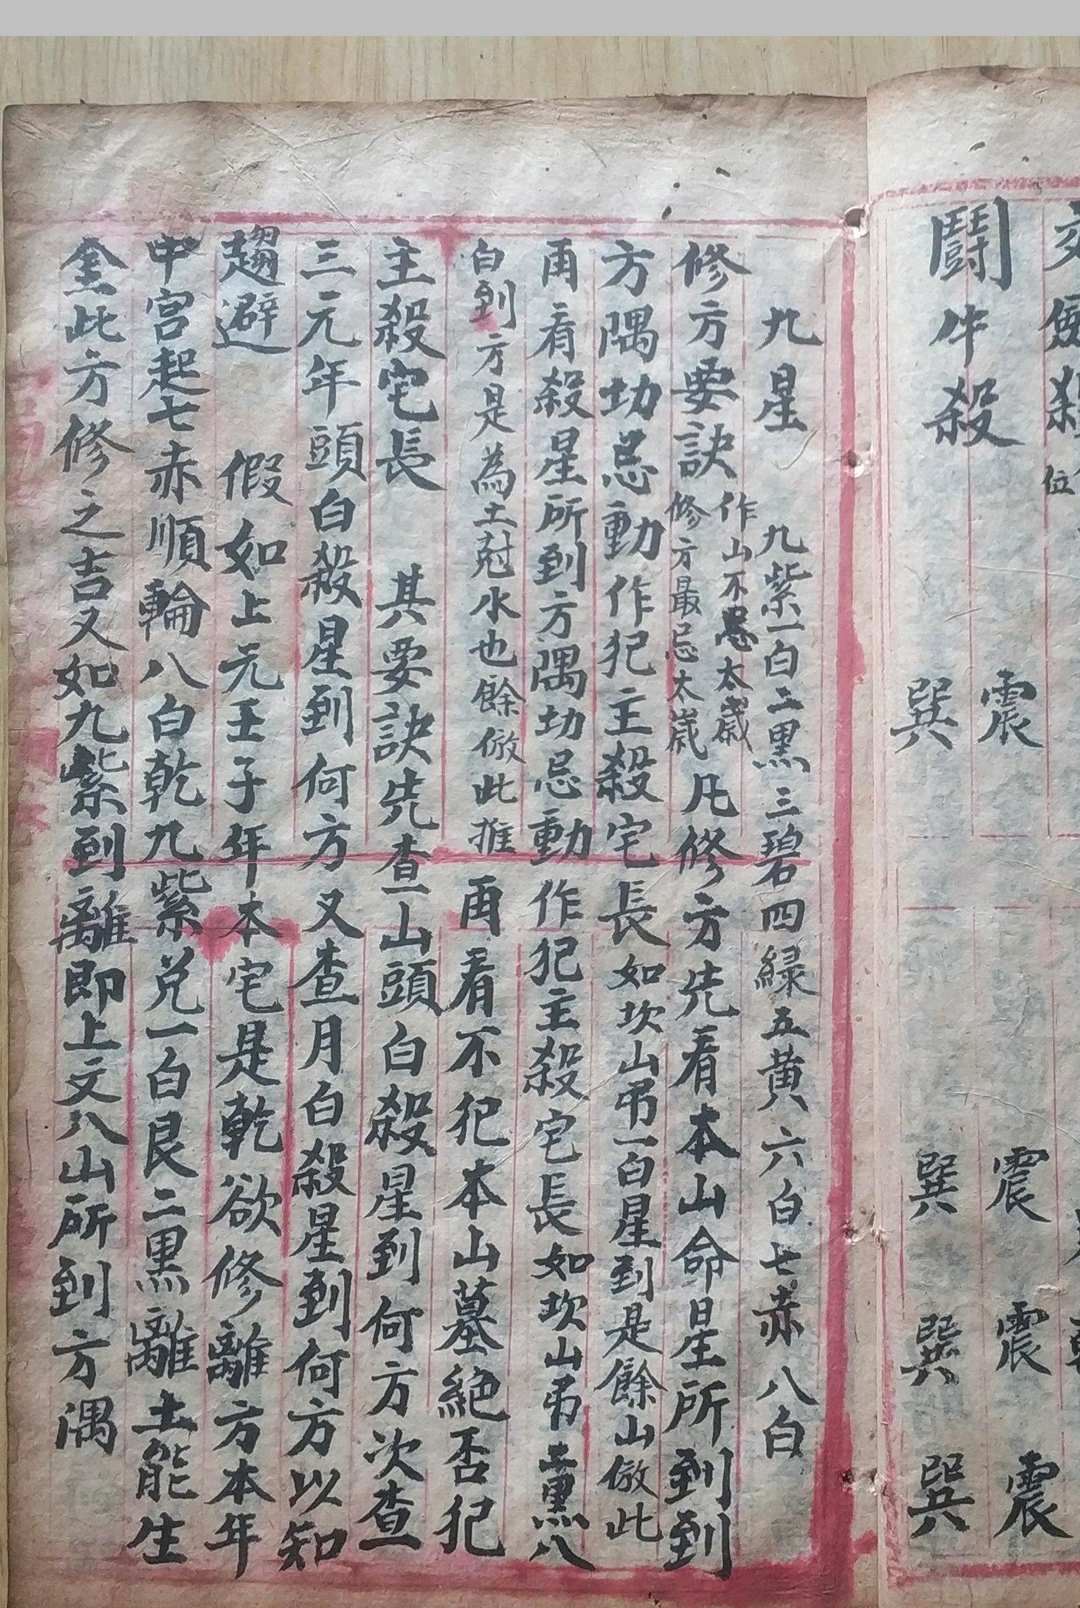 位
鬪牛殺 震 震 震 震
巽 巽 巽 巽
九星 九紫一白二黑三碧四緑五黄六白七赤八白
修方要訣 作山不忌太歲 修方最忌太歲 凡修方先看本山命星所到到
方隅切忌動作犯主殺宅長如坎山弔一白星到是餘山倣此
再看殺星所到方隅切忌動作犯主殺宅長如坎山弔二黑八
白到方是為土尅水也餘倣此推 再看不犯本山墓絕否犯
主殺宅長 其要訣先查山頭白殺星到何方次查
三元年頭白殺星到何方又查月白殺星到何方以知
趨避 假如上元壬子年本宅是乾欲修離方本年
中宮起七赤順輪八白乾九紫兌一白艮二黑離土能生
金此方修之吉又如九紫到離即上文八山所到方隅